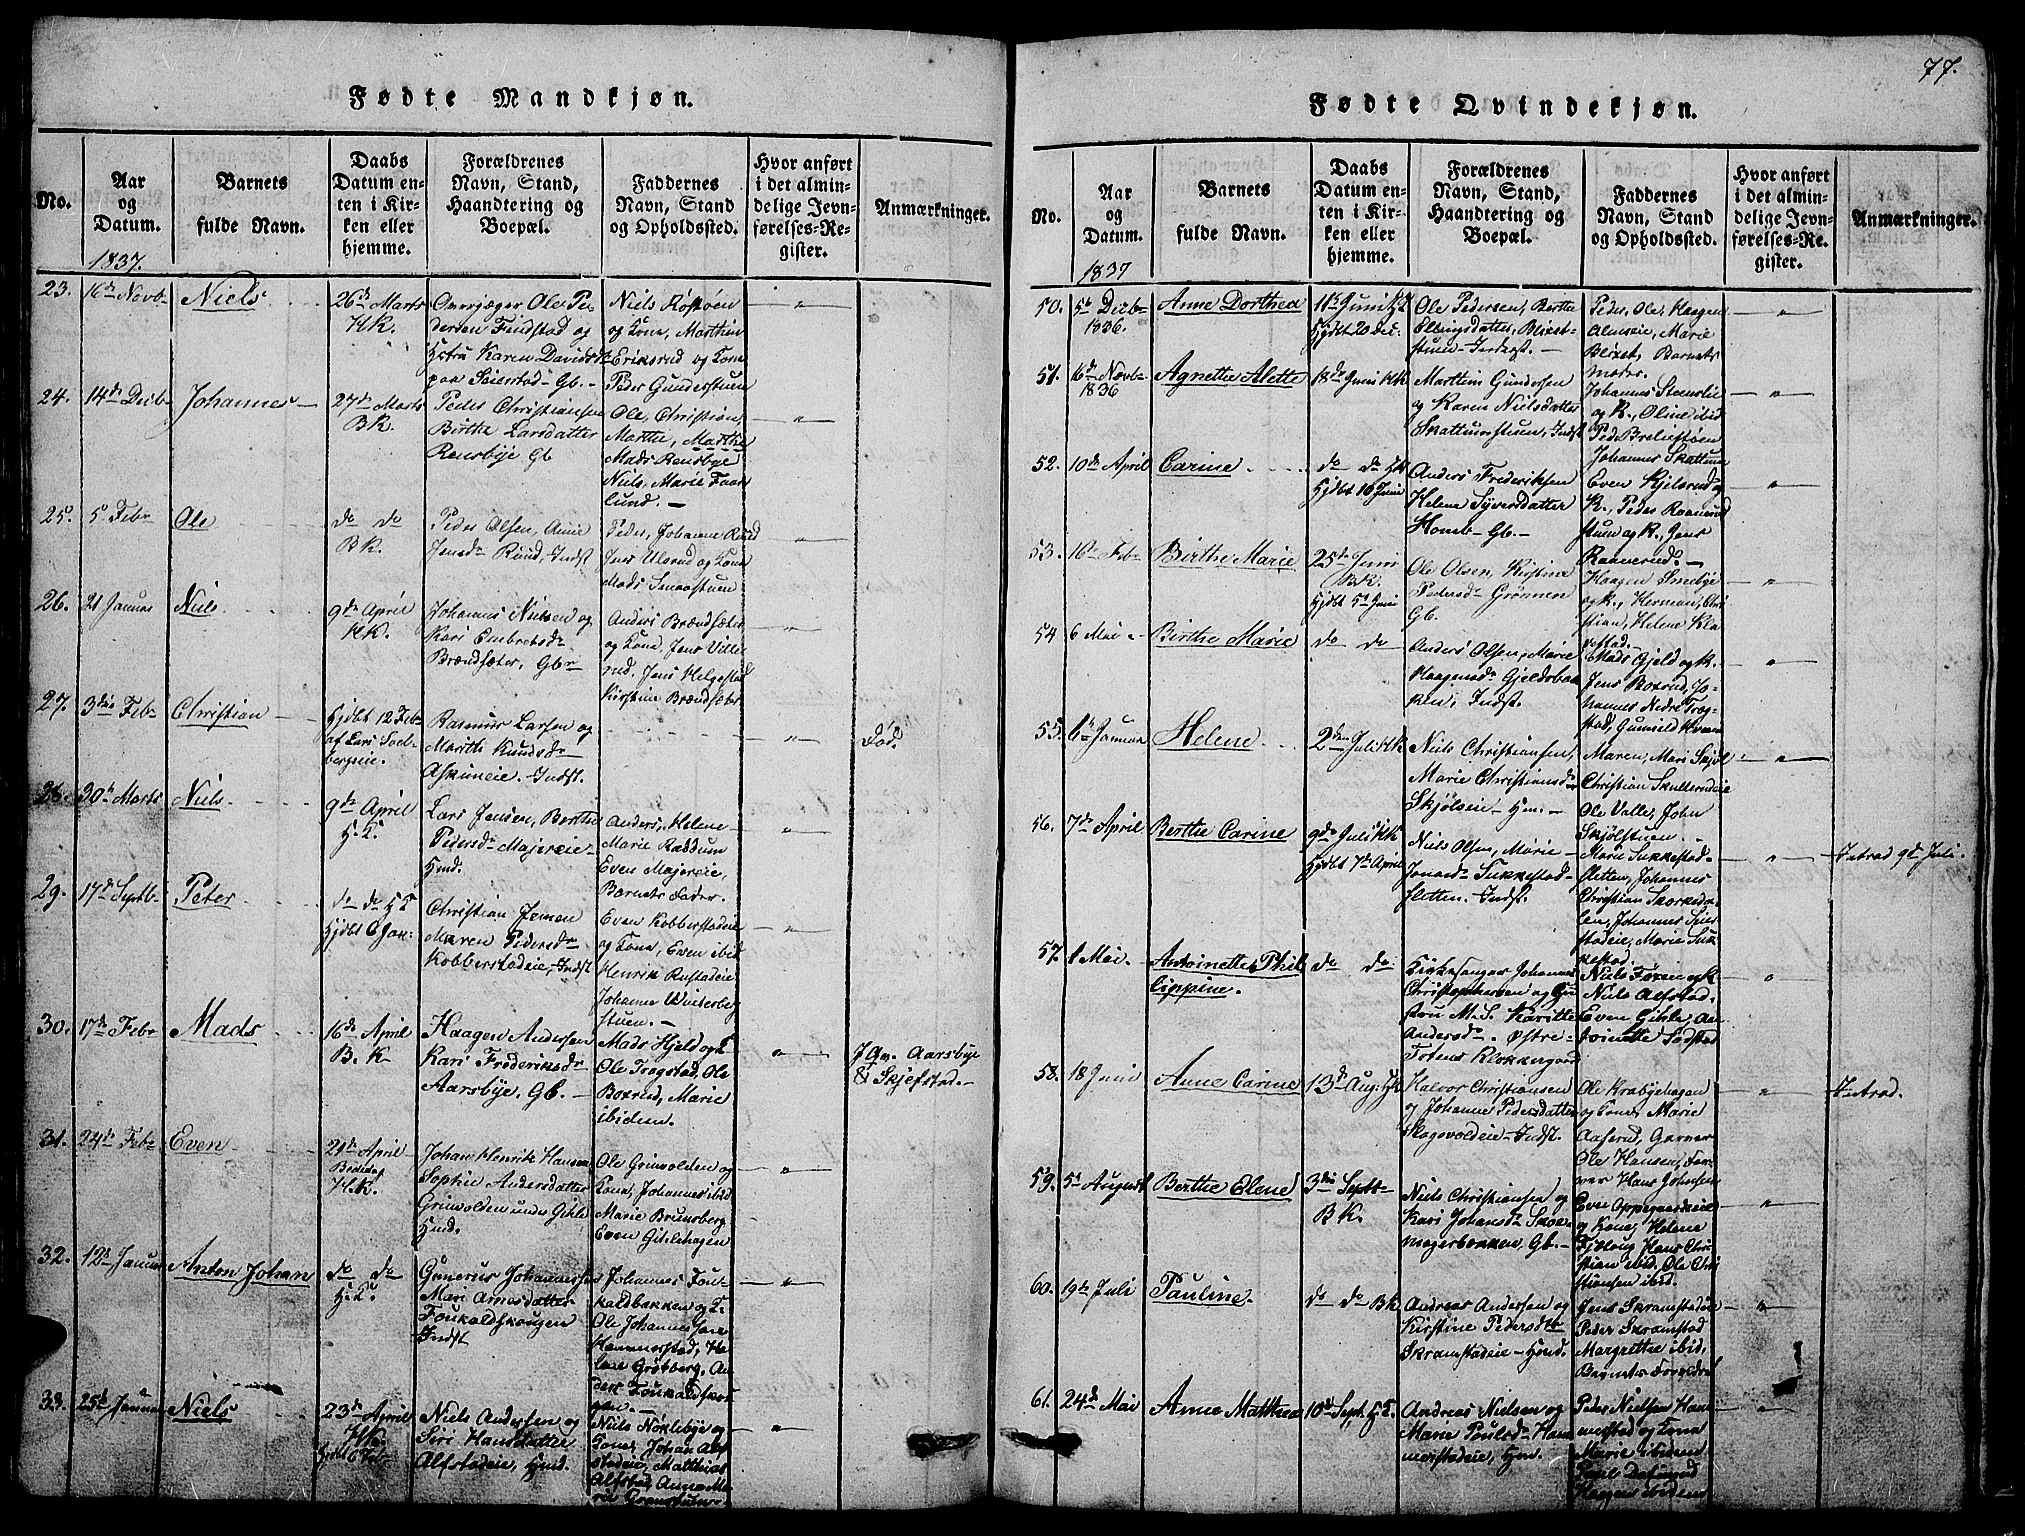 77.
Fødte Mandkjøn.
No.
Aar og Datum.
Barnets fulde Navn.
Daabs Datum enten i Kirken eller hjemme.
Forældrenes Navn, Stand, Haandtering og Boepæl.
Faddernes Navn, Stand og Opholdssted.
Hvor anført i det almindelige Jevnførelses-Register.
Anmærkninger.
1837.
23. 16de Novb. Niels
26de Marts H.K.
Ole Pedersen Findstad og
Hstru Karen Davidsdr
paa Seierstad Gb.
Niels
og Kone, Marthin
Eriksrud og Kone
Peder Gunderstuen
24. 14de Decb. Johannes
27de Marts B.K.
Peder Christiansen
Birthe Larsdatter
Rensbye Gb
Ole, Christian,
Marthe, Marthe
Mads Rensbye
Niels, Marie Faar
lund.
25. 5 Feb. Ole
do do B.K.
Peder Olsen, Anne
Jensdr Rund, Indst
Peder, Johanne Rund
Jens Ulsrud og Kone
Mads Smaastuen
26. 21 Januar Niels
9de April H.K.
Johannes Nielsen og
Kari Embretsdr
Brændsæter, Gbr
Anders Brændsæter
og Kone, Jens Ville
rud, Jens Helgestad
Kirstine Brændsæter
27. 3die Feb. Christian
Hjdbt 12 Feb.
af Lars Soel
bergeie.
Rasmus Larsen og
Marithe Knudsdr
Askimeie. Indst.
Død.
28. 30te Marts Niels
9de April H.K.
Lars Jensen, Berthe
Pedersdr Majereie
Hmd.
Anders, Helene
Marie Raddum
Even Majereie,
Barnets Fader.
29. 17de Septb. Peter
do do H.K.
Hjdbt 6 Jan:
Christian Jensen
Maren Pedersdr
Kobberstadeie, Indst
Even Kobberstadeie
og Kone, Even ibid
Henrik Rustadeie
Johanne Winterberg
stuen.
30. 17de Feb. Mads
16de April B.K
Haagen Andersen
Kari Frederiksdr
Aarsbye, Gb.
Mads Hjeld og K
Ole Trogstad, Ole
Boxrud, Marie
ibidem.
Aarsbye
& Skjefstad.
31. 24de Feb. Even
21de April
Bededag
H.K.
Johan Henrik Hansen
Sophie Andersdatter
Grimsolden under Gihle
Hmd.
Ole Grimsolden og
Kone, Johannes ibid
Marie Brunsberg
Even Gihlehagen
32. 12te Januar Anton Johan
do do H.K.
Gunerius Johannessen
Mari Arnesdatter
Foukaldskougen
Indst
Johannes Fou
kaldbakken og K.
Ole Johannes
Hammerstad, He
lene Grøtberg, An
ders Foukaldskou
gen.
33. 25de Januar Niels
23de April
H.K.
Niels Andersen og
Siri Hansdatter
Alfstadeie, Hmd.
Niels Nøklebye og
Kone, Johan Alf
stadeie, Matthias
Alfstad, Anne Ma
rie
Fødte Qvindekjøn.
No.
Aar og Datum.
Barnets fulde Navn.
Daabs Datum enten i Kirken eller hjemme.
Forældrenes Navn, Stand, Haandtering og Boepæl.
Faddernes Navn, Stand og Opholdssted.
Hvor anført i det almindelige Jevnførelses-Register.
Anmærkninger.
1837
50. 5te Decb. 1836. Anne Dorthea
11te Juni
Hjdbt 20 Dec:
Ole Pedersen, Berthe
Ellingsdatter,
stuen Inderst.
Peder, Ole, Haagen
Almseie, Marie
Blixet, Barnets
moder.
51. 16de Novb. 1836 Agnethe Alette
18de Juni HK
Marthin Gundersen
og Karen Nielsdatter
Skattumstuen, Indst
Johannes Steenslie
og K., Oline ibid
Johannes Skattum
52. 10de April Carine
do do HK
Hjdbt 16 Juni
Anders Frederiksen
Helene Syversdatter
Homb Gb.
Even Kjelsrud og
K., Peder Raanerud
stuen og K., Jens
Raanerud.
53. 16de Feb. Birthe Marie
25de Juni
B.K.
Hjdbt 5te Juni
Ole Olsen, Kirstine
Pedersdr Grønnen
Gb.
Haagen Smebye
og K., Herman, Chri
stian, Helene Kla
pestad.
54 6 Mai Birthe Marie
do do
Anders Olsen, Marie
Haagensdr Gjeldsbak
ken, Indst.
Mads Gjeld og K.
Jens Boxrud, Jo
hannes Nedre Trog
stad, Gunnild Kværn
55. 6te Januar Helene
2den Juli HK
Niels Christiansen,
Marie Christiansdr
Skjølseie Hm.
Maren, Mari Skjøl
Christian Skullerudeie
Ole Valle, John
Skjølstuen.
56. 7de April Berthe Carine
9de Juli HK
Hjdbt 7de April
Niels Olsen, Marie
Jonasdr Sukkestad
sletten. Indst.
Marie Sukkestad
sletten, Johannes
Christian
Johannes
stadeie, Marie Suk
kestad.
Introd 9de Juli.
57. 1 Mai. Antoinette Phil
lippine.
do do
Kirkesanger Johannes
Christophersen og Hu
stru M. S. Karithe
Andersdr. Østre
Totens Klokkergaard
Niels Foxen og K
Niels Alfstad,
Even Gihle, An
toinette Sodstad
58. 18 Juni Anne Carine
13de Aug. HK
Halvor Christiansen
og Johanne Pedersdatter
Skogsvoldeie Indst.
Ole Krabyehagen
og Kone, Marie
Aaserud, Garver
Ole Hansen, Far
ver Hans Johnsen
Introd.
59. 5te August Berthe Elene
3die Septb.
B K.
Niels Christiansen
Kari Johansdr Skoe
magerbakken, Gb.
Even Appegaardseie
og Kone, Helene
Hans Chri
stian ibid, Ole Chri
stiansen ibid.
60. 19de Juli Pauline.
do do BK
Andreas Andersen og
Kirstine Pedersdtr
Skramstadeie Hmd.
Jens Skramstadeie
Peder Skramstad
Margrethe ibid.
Barnets Forældre
61. 24de Mai Anne Matthea
10de Sept. H.K.
Andreas Nielsen og
Marie Poulsdr Ham
merstadeie, Hm.
Peder Nielsen Ham
merstad og Kone
Marie ibidem
Haagen ibidem